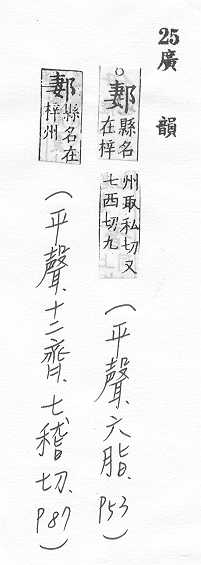 25廣韻
郪縣名在梓州取私切又七西切九
(平聲、六脂、P53)
郪縣名在梓州
(平聲、十二齊、七稽切、P87)